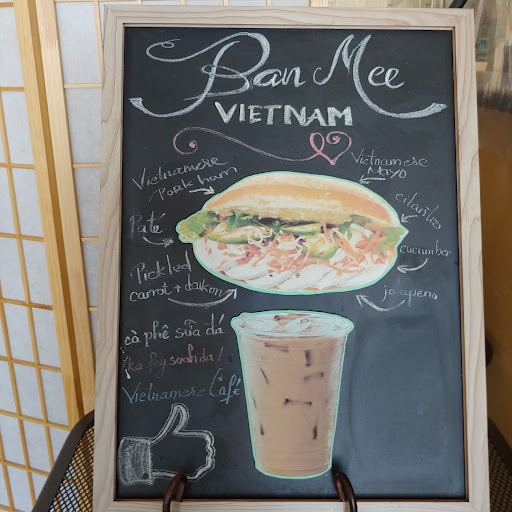 Ban Mee
VIETNAM
Vietnamese
Pork ham
Vietnamese
Mayo
cilantro
Paté
cucumber
Pickled
carrot + daikon
jalapeno
cà phê sữa đá
Vietnamese Café